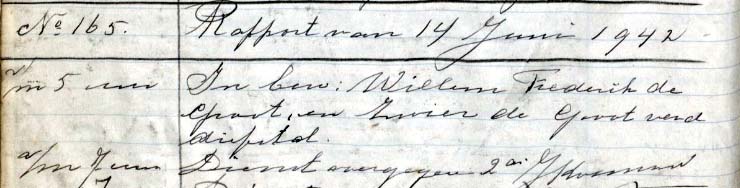 No 165. Rapport van 14 Juni 1942
v/m 5 uur In bew: Willem Frederik de
Groot, en Zwier de Groot verd
diefstal.
v/m 7 uur Dienst overgegeven